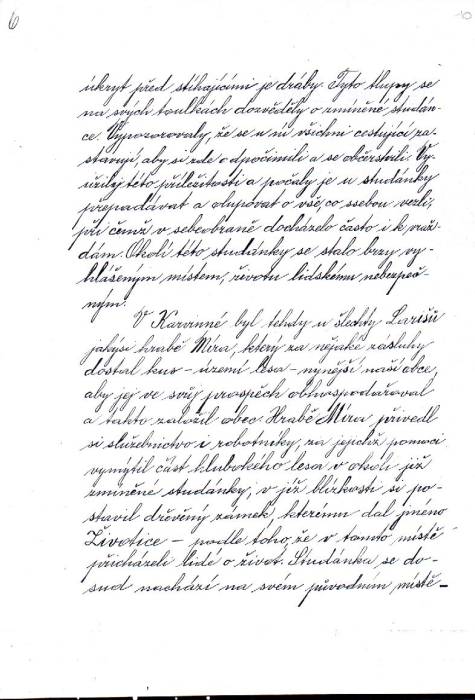 6
10
úkryt před stíhajícími je dráby. Tyto tlupy se
na svých toulkách dozvěděly o zmíněné studán-
ce. Vypozorovaly, že se u ní všichni cestující za-
stavují, aby si zde odpočinili a se občerstvili. Vy-
užily této příležitosti a počaly je u studánky
přepadávat a olupovat o vše, co ssebou vezli,
při čemž v sebeobraně docházelo často i k vraž-
dám. Okolí této studánky se stalo brzy vy-
hlášeným místem, životu lidskému nebezpeč-
ným.
V Karvinné byl tehdy u šlechty Larišů
jakýsi hrabě Míra, který za nějaké zásluhy
dostal kus - území lesa - nynější naší obce,
aby jej ve svůj prospěch obhospodařoval
a takto založil obec. Hrabě Míra přivedl
si služebnictvo i robotníky, za jejichž pomoci
vymýtil část hlubokého lesa v okolí již
zmíněné studánky, v jíž blízkosti si po-
stavil dřevěný zámek, kterému dal jméno
Životice - podle toho, že v tomto místě
přicházeli lidé o život. Studánka se do-
sud nachází na svém původním místě -